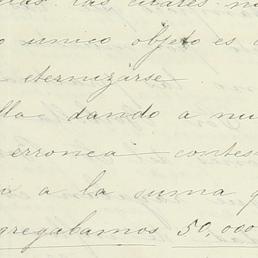 las cuales
unico objeto es
eternizarse
lla dando a
erronea contes
a la suma
gregabamos 50,000